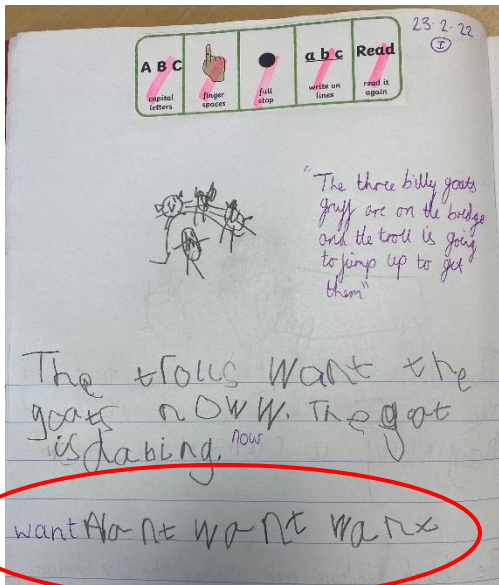 23.2.22
I
A B C
capital letters
finger spaces
full stop
a b c
write on lines
Read
read it again
"The three billy goats
gruff are on the bridge
and the troll is going
to jump up to get
them"
The trolls want the
goats nOWW. The goat
is dabing.
now
want want want want